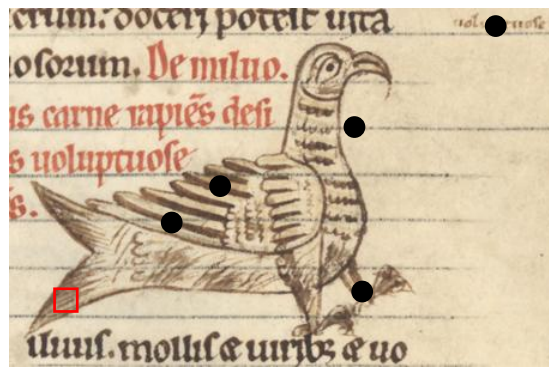 docerj poteſt uita
oſorum. De miluo.
us carne rapiēs deſi
s uoluptuoſe
s.
iluus. mollis & uiribꝫ & uo